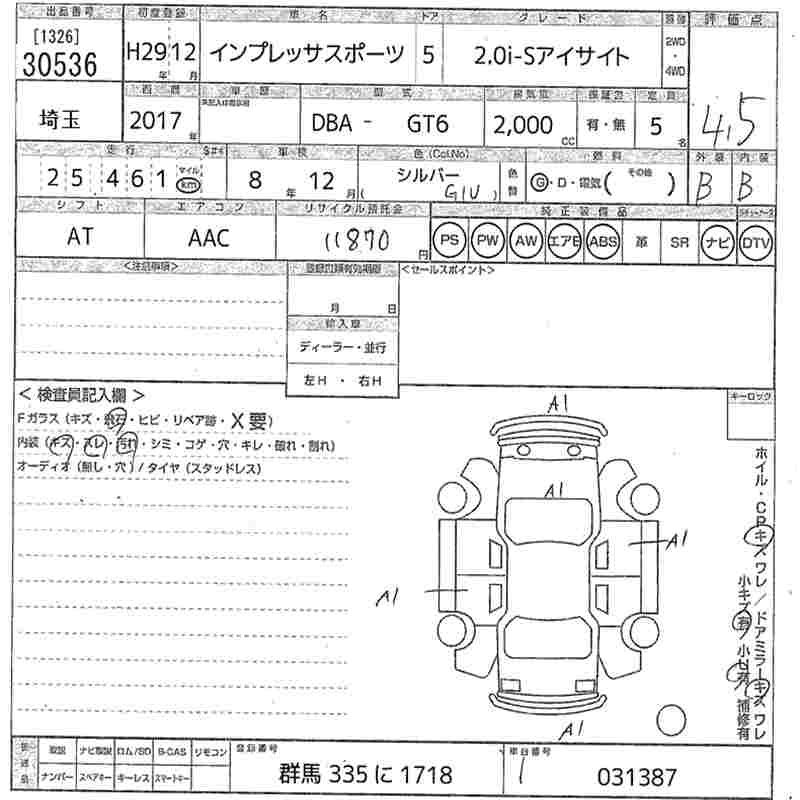 出品番号 初度登録 車名 ドア グレード 評価点
[1326]
30536 H29 12 インプレッサスポーツ 5 2.0i-Sアイサイト 2WD・4WD
年 月
西暦 車歴 型式 排気量 定員
埼玉 2017年 DBA - GT6 2,000cc 有・無 5名 4.5
走行 車検 色(Col.No) 燃料 外装 内装
25461 マイル km 8年 12月 シルバー (G1U) 色替 G・D・電気(その他 ) B B
シフト エアコン リサイクル預託金 純正装備品
AT AAC 11870円 PS PW AW エアB ABS 革 SR ナビ DTV
<注意事項> 登録書類有効期限 <セールスポイント>
月 日
輸入車
ディーラー・並行
左H ・ 右H
<検査員記入欄> キーロック
Fガラス(キズ・飛石・ヒビ・リペア跡・X要)
内装(キズ・スレ・汚れ・シミ・コゲ・穴・キレ・破れ・割れ)
オーディオ(無し・穴)/タイヤ(スタッドレス)
A1
A1
A1
A1
A1
ホイル・CPキズワレ/ドアミラーキズワレ
小キズ有/小凹有/補修有
取説 ナビ取説 ロム/SD B-CAS リモコン 登録番号 車台番号
ナンバー スペアキー キーレス スマートキー 群馬 335 に 1718 031387